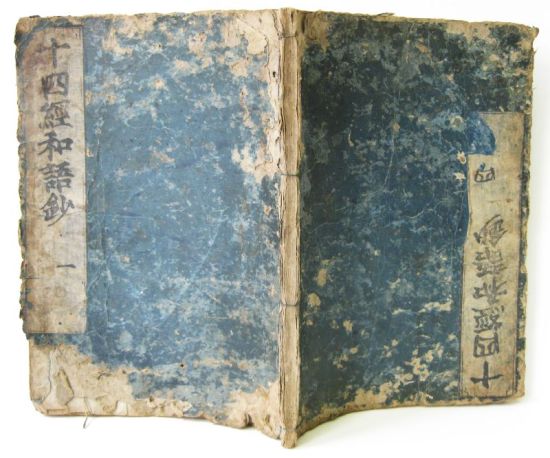 十四經和語鈔
一
十四經和語鈔
四